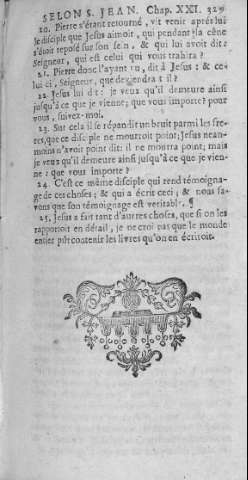 SELON S. JEAN. Chap. XXI. 329
20. Pierre s'étant retourné, vit venir après lui
le disciple que Jesus aimoit, qui pendant la cêne
s'étoit reposé sur son sein, & qui lui avoit dit:
Seigneur, qui est celui qui vous trahira?
21. Pierre donc l'ayant vu, dit à Jesus: & ce-
lui ci, Seigneur, que deviendra t il?
22. Jesus lui dit: je veux qu'il demeure ainsi
jusqu'à ce que je vienne; que vous importe? pour
vous, suivez-moi.
23. Sur cela il se répandit un bruit parmi les fre-
res, que ce disciple ne mourroit point; Jesus nean-
moins n'avoit point dit: il ne mourra point; mais
je veux qu'il demeure ainsi jusqu'à ce que je vien-
ne: que vous importe?
24. C'est ce même disciple qui rend témoigna-
ge de ces choses; & qui a écrit ceci; & nous sa-
vons que son témoignage est veritable. ¶
25. Jesus a fait tant d'autres choses, que si on les
rapportoit en détail, je ne croi pas que le monde
entier pût contenir les livres qu'on en écriroit.